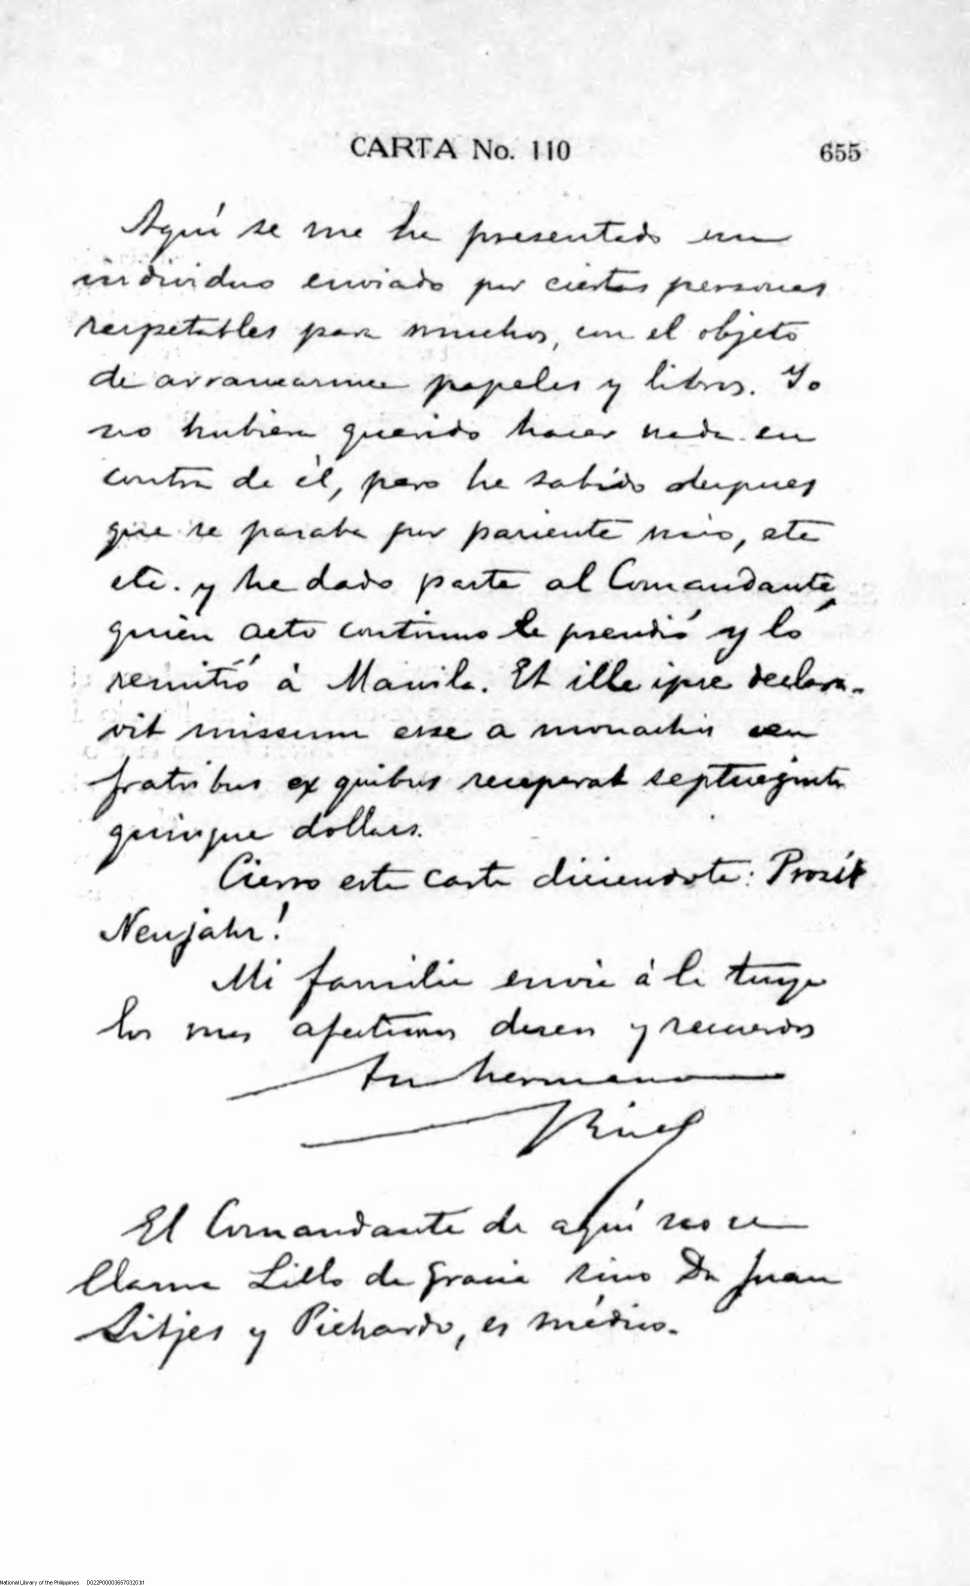 CARTA No. 110 655
Aquí se me ha presentado un
individuo enviado por ciertas personas
respetables para muchos, con el objeto
de arrancarme papeles y libros. Yo
no hubiera querido hacer nada en
contra de él, pero he sabido despues
que se pasaba por pariente mio, etc
etc. y he dado parte al Comandante,
quien acto continuo le prendió y lo
remitió á Manila. Et ille ipse declara-
vit missum esse a monachis seu
fratribus ex quibus receperat septuaginta
quinque dollars.
Cierro esta carta diciendote: Prosit
Neujahr!
Mi familia envia á la tuya
los mas afectuosos deseos y recuerdos
Tu hermano
Rizal
El Comandante de aquí no se
llama Lillo de Gracia sino Dn Juan
Sitjes y Pichardo, es médico.
National Library of the Philippines